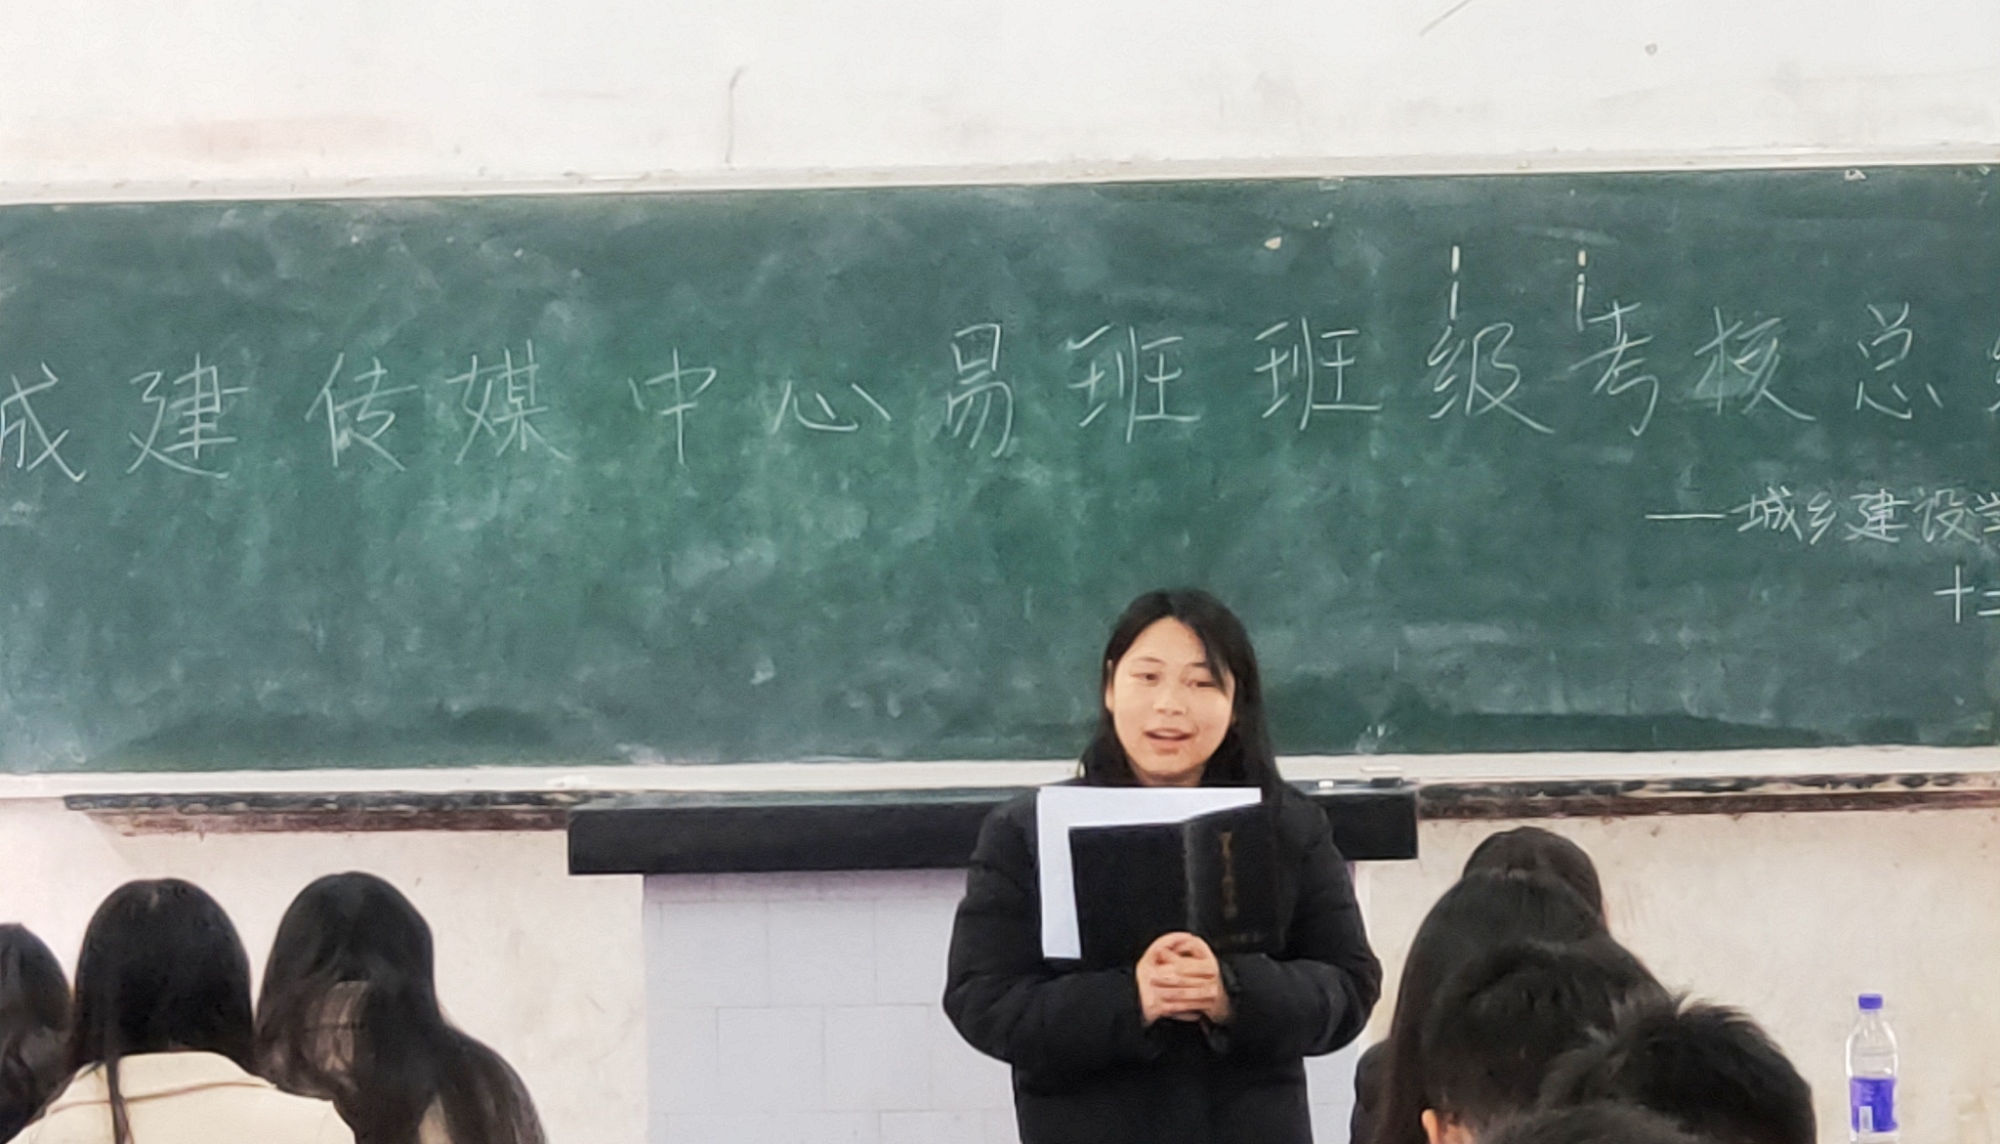 成建传媒中心易班班级考核总
——城乡建设学
十二